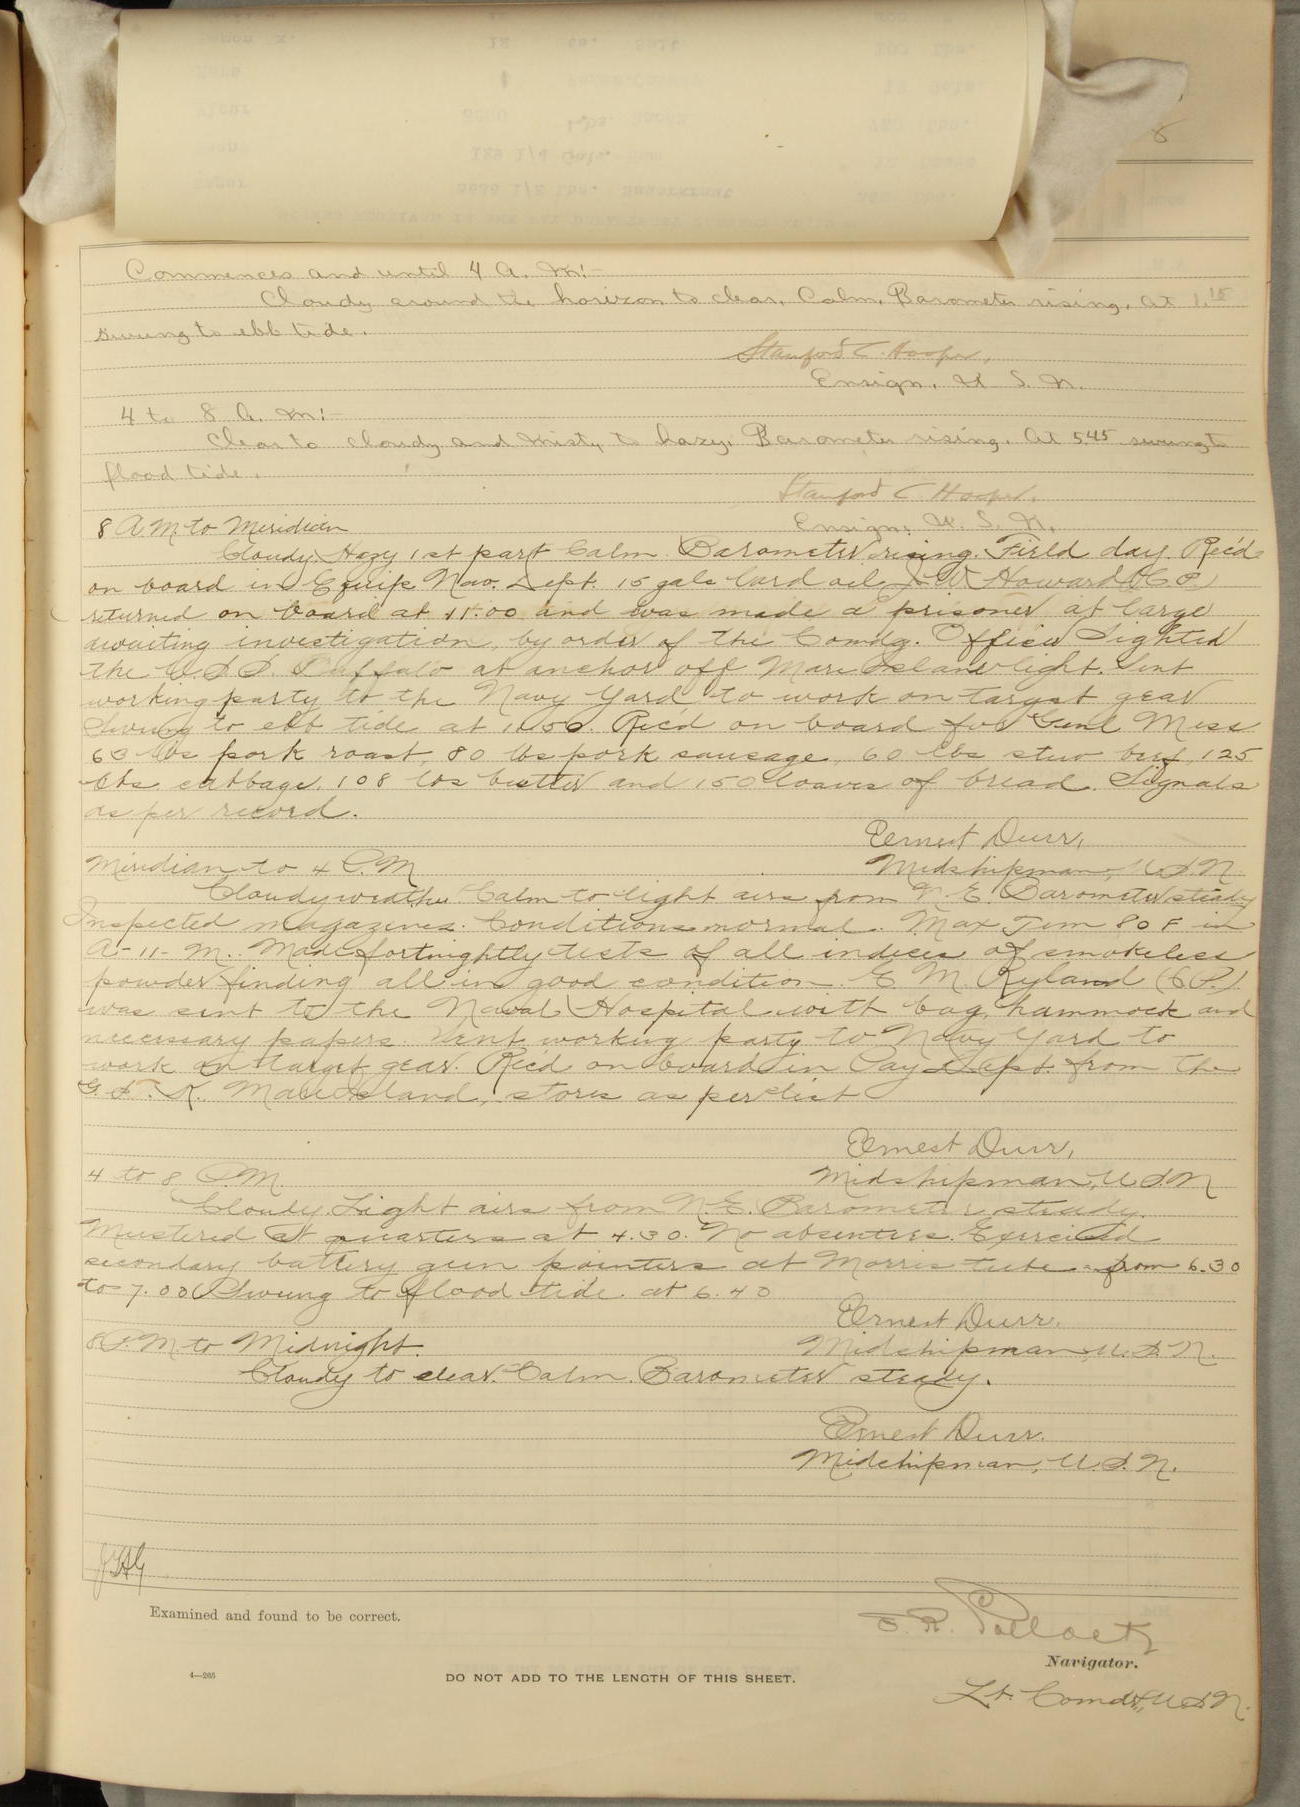 Commences and until 4 A. M:-
Cloudy around the horizon to clear. Calm. Barometer rising. At 1.15
swung to ebb tide.
Stanford C. Hooper,
Ensign, U. S. N.
4 to 8 A. M:-
Clear to cloudy and misty to hazy. Barometer rising. At 5.45 swung to
flood tide.
Stanford C Hooper.
Ensign, U. S. N.
8 A.M. to Meridian
Cloudy. Hazy 1st part Calm. Barometer rising. Field day. Rec'd
on board in Equip Nav. Dept. 15 gals lard oil. J. W. Howard (C.P.)
returned on board at 11.00 and was made a prisoner at large
awaiting investigation, by order of the Comdg. Officer Sighted
the U.S.S. Buffalo at anchor off Mare Island light. Sent
working party to the Navy Yard to work on target gear
Swung to ebb tide at 11.50. Rec'd on board for Genl Mess
63 lbs pork roast, 80 lbs pork sausage, 60 lbs stew beef, 125
lbs cabbage, 108 lbs butter and 150 loaves of bread. Signals
as per record.
Ernest Durr,
Midshipman, U.S.N
Meridian to 4 P.M
Cloudy weather. Calm to light airs from N. E. Barometer steady
Inspected magazines. Conditions normal. Max Tem 80 F in
A-11-M. Made fortnightly tests of all indices of smokeless
powder finding all in good condition. E. M. Ryland (C.P.).
was sent to the Naval Hospital with bag, hammock and
necessary papers. Sent working party to Navy Yard to
work on target gear. Rec'd on board in Pay Dept from the
G. S. K. Mare Island, stores as per list
Ernest Durr,
Midshipman, U.S.N
4 to 8 P.M.
Cloudy. Light airs from N.E. Barometer steady.
Mustered at quarters at 4.30. No absentees. Exercised
secondary battery gun pointers at Morris tube from 6.30
to 7.00 Swung to flood tide at 6.40
Ernest Durr.
Midshipman, U.S.N.
8 P.M to Midnight.
Cloudy to clear. Calm. Barometer steady.
Ernest Durr.
Midshipman, U.S.N.
Examined and found to be correct.
E. R. Pollock
Navigator.
4—265
DO NOT ADD TO THE LENGTH OF THIS SHEET.
Lt. Comdr, U.S.N.